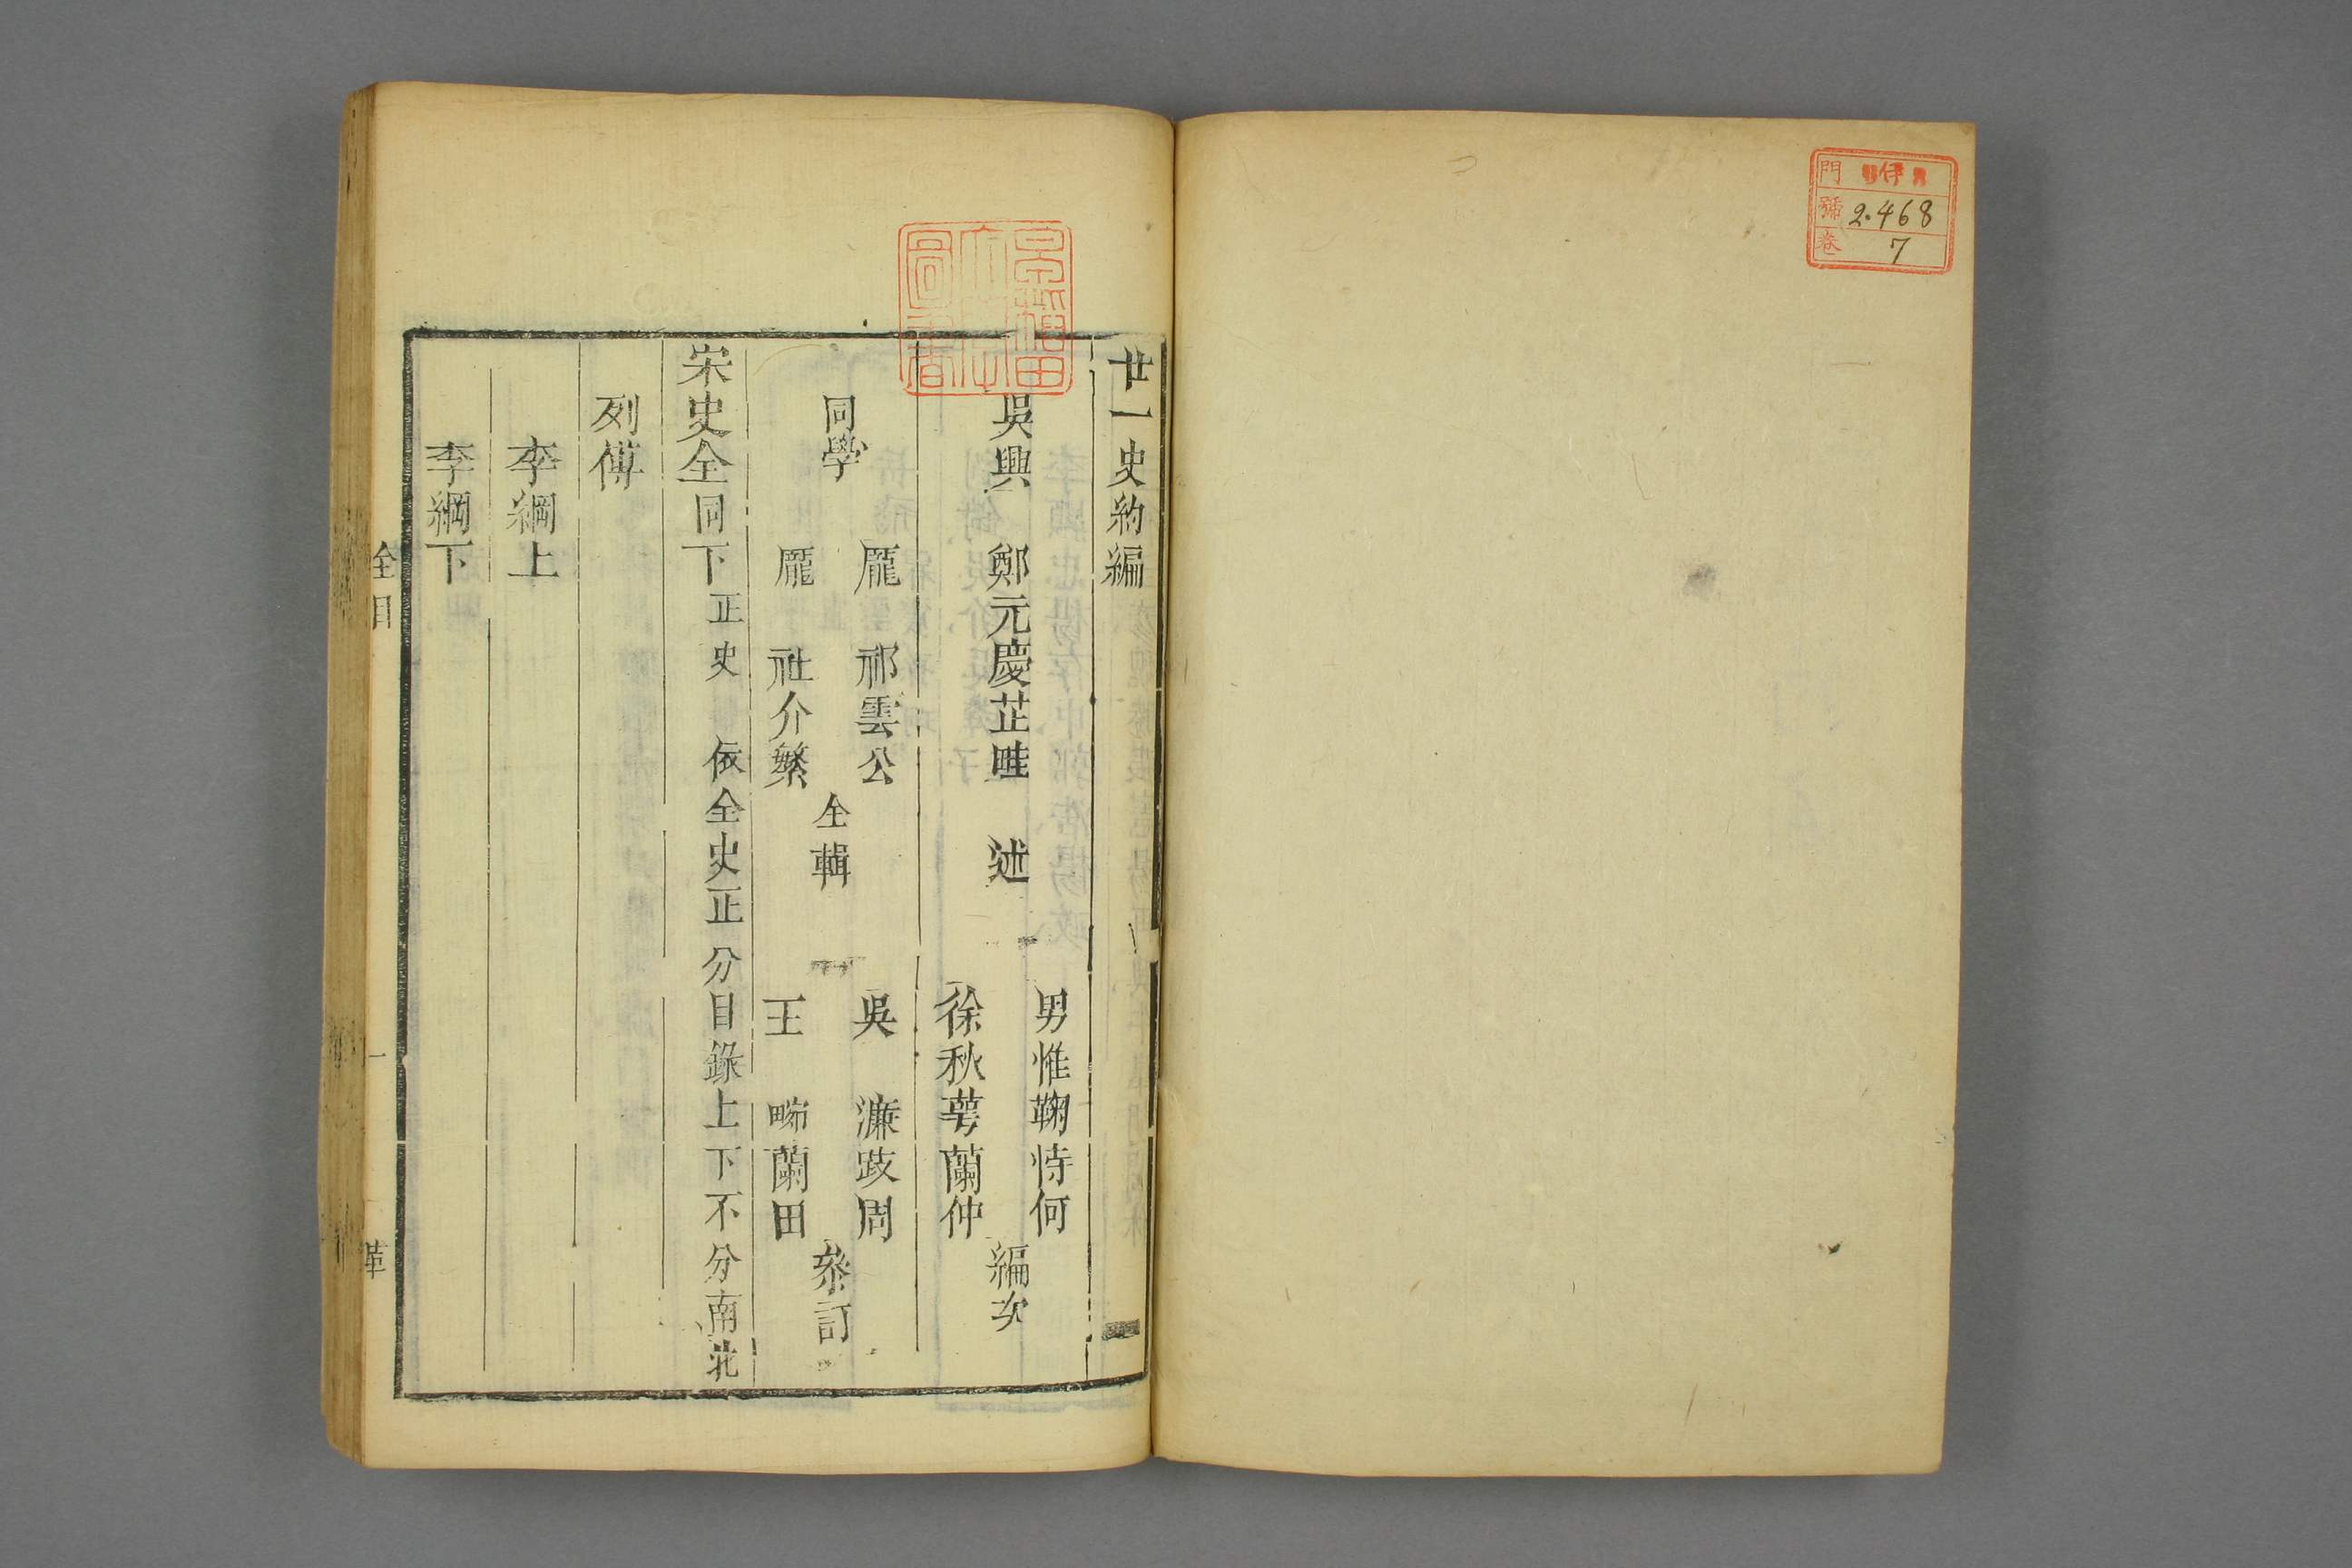 門 伊
號 2.468
卷 7
廿一史約編
吳興 鄭元慶芷畦 述
男惟鞠恃何
徐秋蕚蘭仲
編次
同學
龎 祁雲公
龎 社介繁
仝輯
吳 濂跂周
王 㽥蘭田
叅訂
宋史全同下正史 依全史正 分目錄上下不分南北
列傳
李綱上
李綱下
全目 一 革
早稻田大學圖書